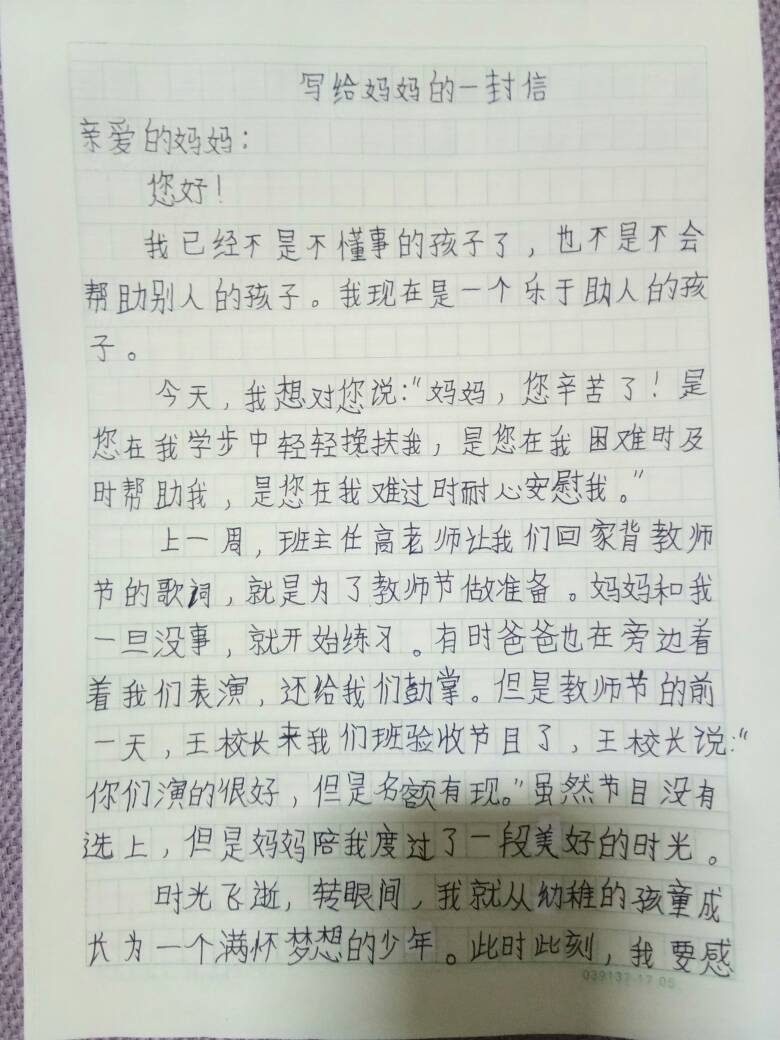 写给妈妈的一封信
亲爱的妈妈：
您好！
我已经不是不懂事的孩子了，也不是不会
帮助别人的孩子。我现在是一个乐于助人的孩
子。
今天，我想对您说：“妈妈，您辛苦了！是
您在我学步中轻轻挽扶我，是您在我困难时及
时帮助我，是您在我难过时耐心安慰我。”
上一周，班主任高老师让我们回家背教师
节的歌词，就是为了教师节做准备。妈妈和我
一旦没事，就开始练习。有时爸爸也在旁边着
着我们表演，还给我们鼓掌。但是教师节的前
一天，王校长来我们班验收节目了，王校长说：“
你们演的很好，但是名额有现。”虽然节目没有
选上，但是妈妈陪我度过了一段美好的时光。
时光飞逝，转眼间，我就从幼稚的孩童成
长为一个满怀梦想的少年。此时此刻，我要感
039137·17.05